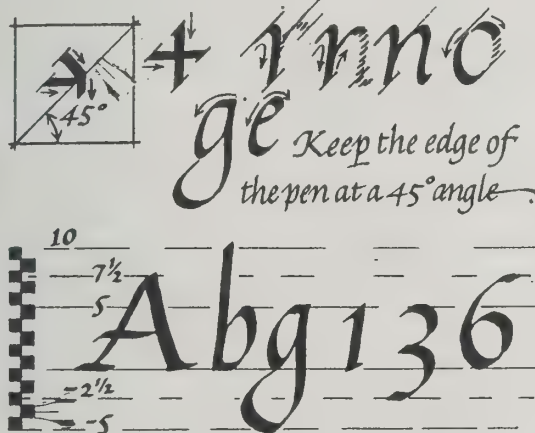 + r n n o
45°
g e
Keep the edge of
the pen at a 45° angle
10
7½
5
A b g 1 3 6
-2½
-5